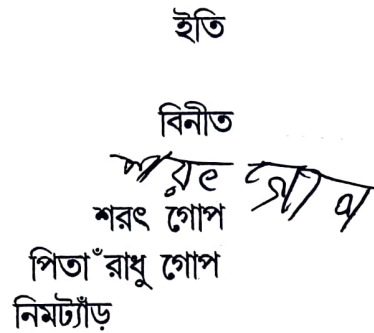 ইতি
বিনীত
শরৎ গোপ
শরৎ গোপ
পিতা ঁরাধু গোপ
নিমট্যাঁড়